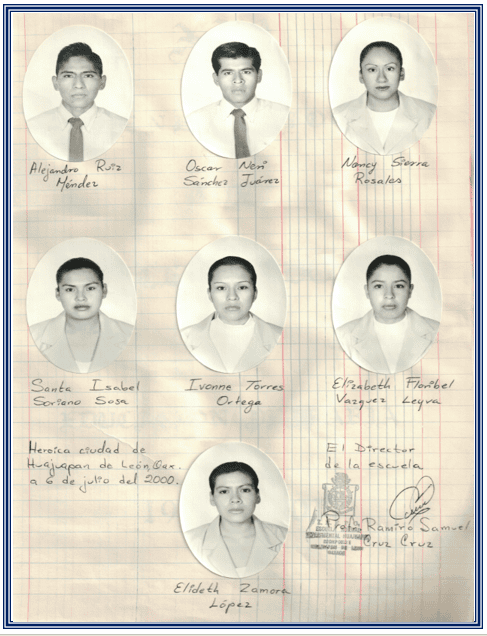 Alejandro Ruiz
Méndez
Oscar Neri
Sánchez Juárez
Nancy Sierra
Rosales
Santa Isabel
Soriano Sosa
Ivonne Torres
Ortega
Elizabeth Floribel
Vazquez Leyva
Heroica ciudad de
Huajuapan de León, Oax.
a 6 de julio del 2000.
El Director
de la escuela
Profr. Ramiro Samuel
Cruz Cruz
Elideth Zamora
López